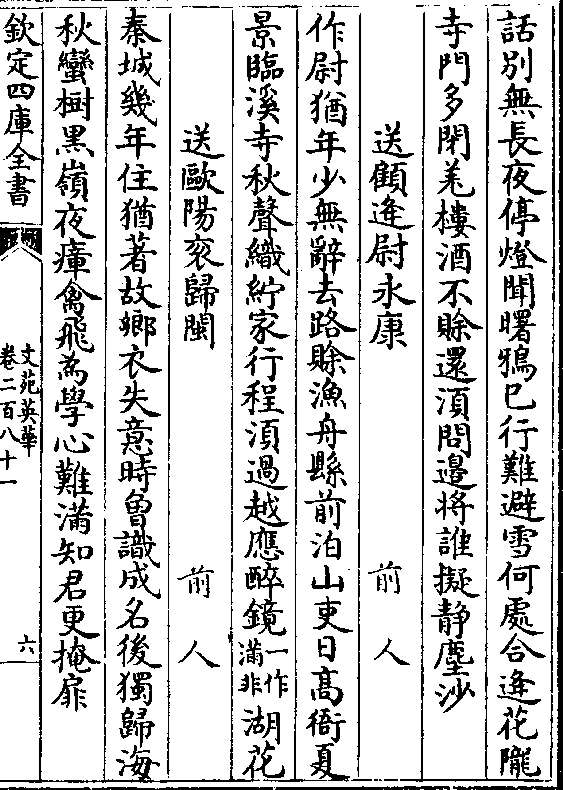 話别無長夜停燈聞曙鴉已行難避雪何處合逢花隴
寺門多閉羌樓酒不賖還湏問邊将誰擬静塵沙
送顧逢尉永康 前人
作尉猶年少無辭去路賖漁舟縣前泊山吏日髙衙夏
景臨溪寺秋聲織紵家行程湏過越應醉鏡一作滿非湖花
送歐陽衮歸閩 前人
秦城幾年住猶著故鄉衣失意時曾識成名後獨歸海
秋蠻樹黒嶺夜瘴禽飛為學心難滿知君更掩扉
欽定四庫全書
文苑英華
卷二百八十一
六